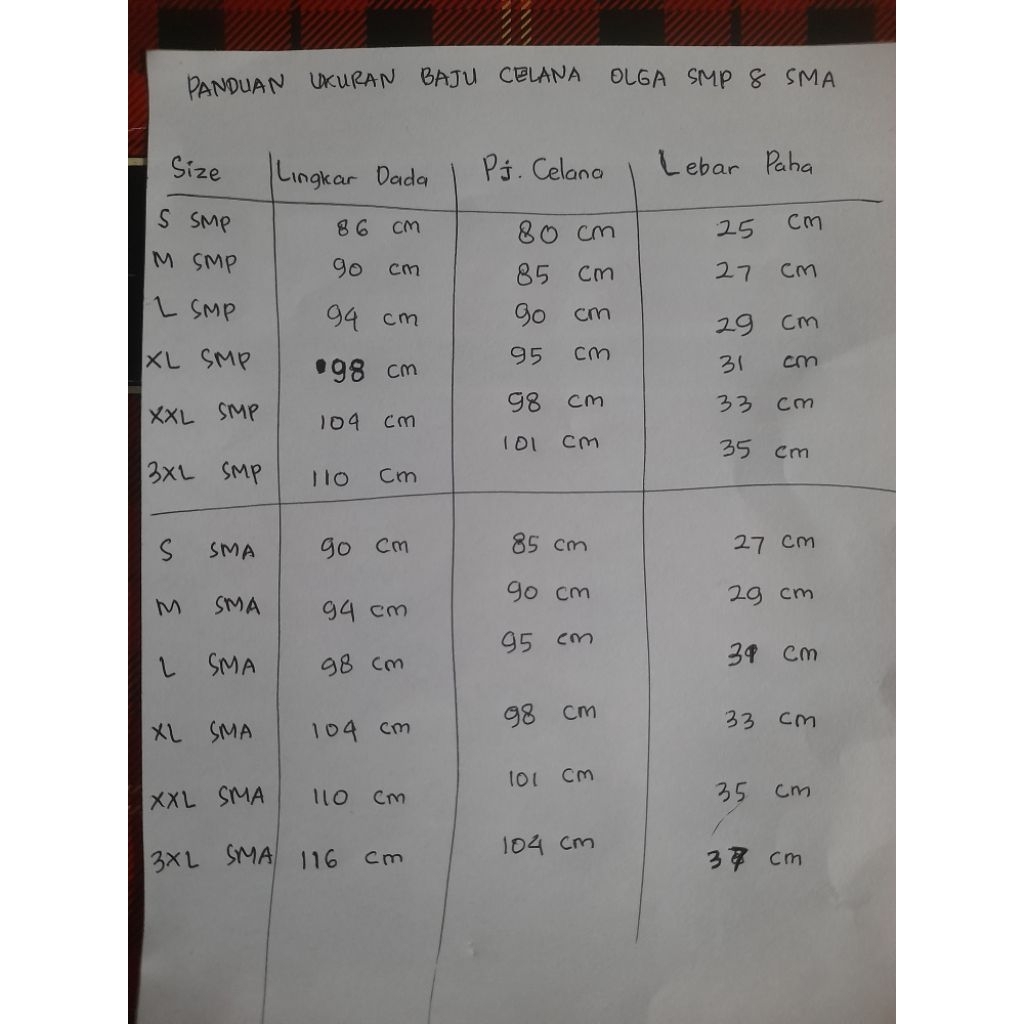 PANDUAN UKURAN BAJU CELANA OLGA SMP & SMA
Size Lingkar Dada Pj. Celana Lebar Paha
S SMP 86 cm 80 cm 25 cm
M SMP 90 cm 85 cm 27 cm
L SMP 94 cm 90 cm 29 cm
XL SMP 98 cm 95 cm 31 cm
XXL SMP 104 cm 98 cm 33 cm
3XL SMP 110 cm 101 cm 35 cm
S SMA 90 cm 85 cm 27 cm
M SMA 94 cm 90 cm 29 cm
L SMA 98 cm 95 cm 31 cm
XL SMA 104 cm 98 cm 33 cm
XXL SMA 110 cm 101 cm 35 cm
3XL SMA 116 cm 104 cm 37 cm